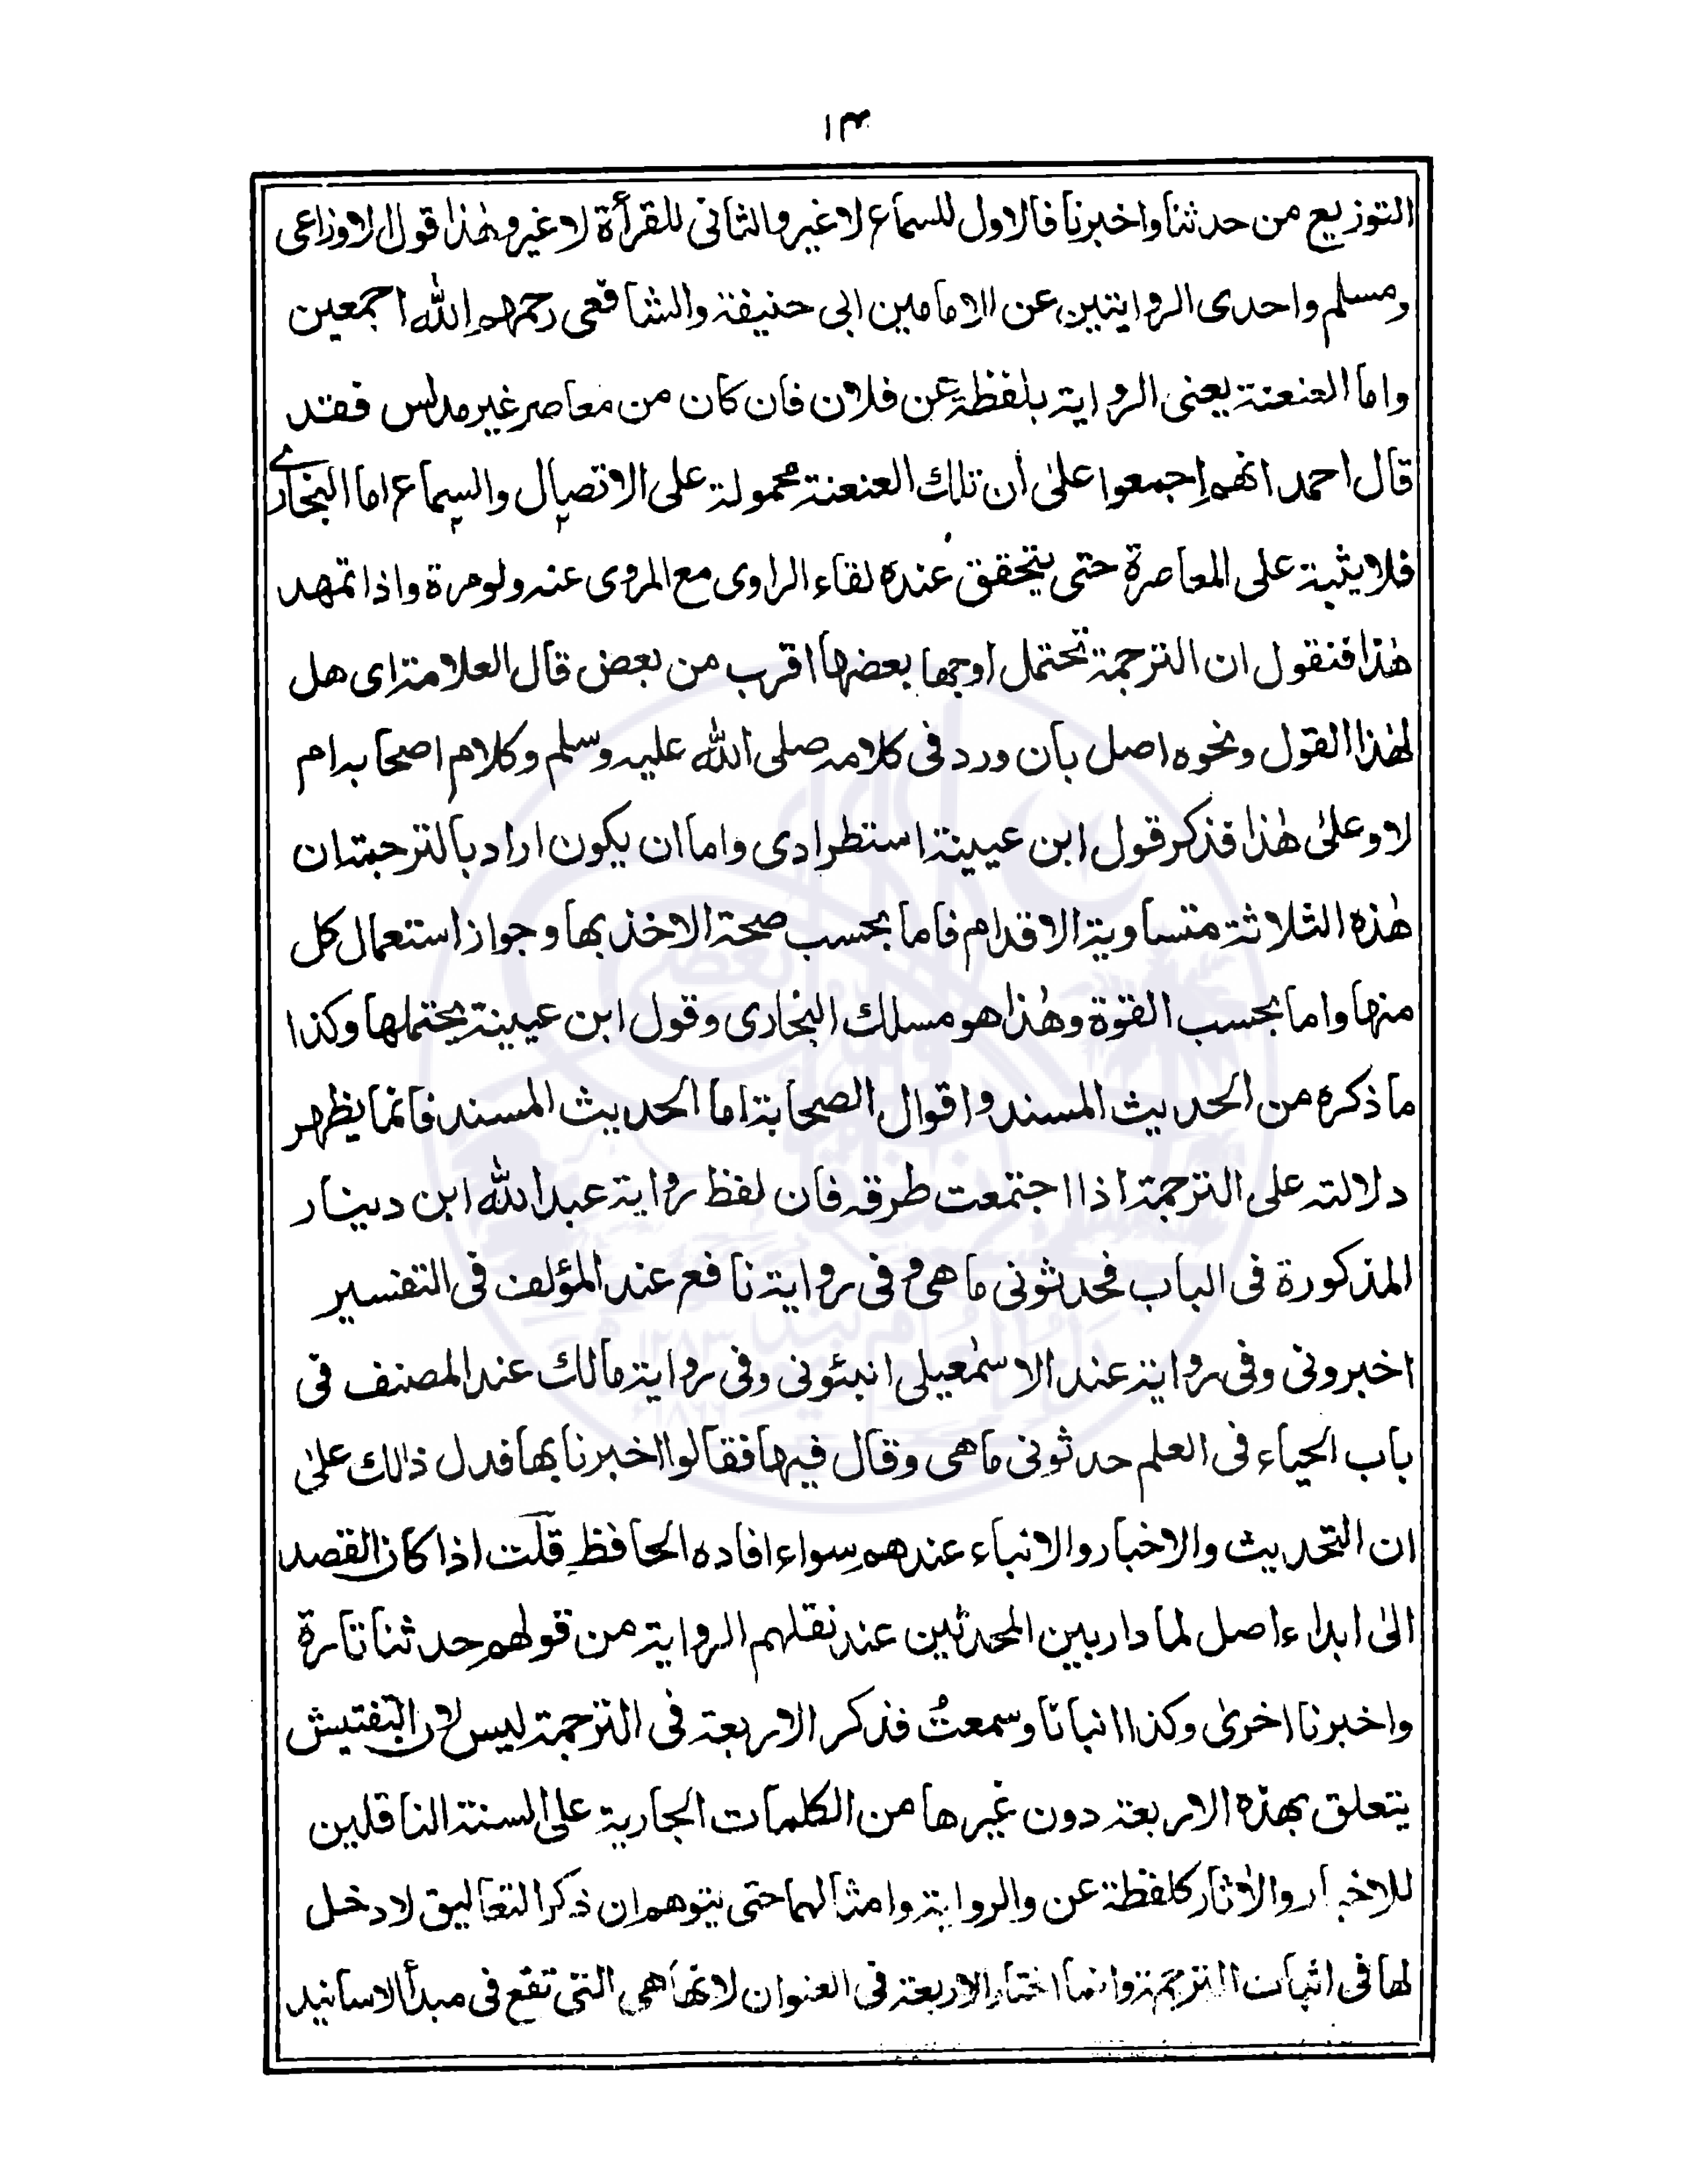 ١٣
التوزيع من حدثنا واخبرنا فالاول للسماع لا غير والثانى للقرأة لا غير وهٰذا قول الاوزاعى
ومسلم واحدى الروايتين عن الامامين ابى حنيفة والشافعى رحمهم الله اجمعين
واما العنعنة يعنى الرواية بلفظة عن فلان فان كان من معاصر غير مدلس فقد
قال احمد انهم اجمعوا علىٰ ان تلك العنعنة محمولة على الاتصال والسماع اما البخارى
فلا يثبته على المعاصرة حتى يتحقق عنده لقاء الراوى مع المروى عنه ولو مرة واذا تمهد
هٰذا فنقول ان الترجمة تحتمل اوجها بعضها اقرب من بعض قال العلامة اى هل
لهٰذا القول ونحوه اصل بان ورد فى كلامه صلى الله عليه وسلم وكلام اصحابه ام
لا وعلىٰ هٰذا فذكر قول ابن عيينة استطرادى واما ان يكون اراد بالترجمة ان
هٰذه الثلاثة متساوية الاقدام فاما بحسب صحة الاخذ بها وجواز استعمال كل
منها واما بحسب القوة وهٰذا هو مسلك البخارى وقول ابن عيينة يحتملها وكذا
ما ذكره من الحديث المسند واقوال الصحابة اما الحديث المسند فانما يظهر
دلالته على الترجمة اذا اجتمعت طرقه فان لفظ رواية عبدالله ابن دينار
المذكورة فى الباب فحدثونى ما هى وفى رواية نافع عند المؤلف فى التفسير
اخبرونى وفى رواية عند الاسمٰعيلى انبئونى وفى رواية مالك عند المصنف فى
باب الحياء فى العلم حدثونى ما هى وقال فيها فقالوا اخبرنا بها فدل ذالك علىٰ
ان التحديث والاخبار والانباء عندهم سواء افاده الحافظ قلت اذا كان القصد
الىٰ ابداء اصل لما دار بين المحدثين عند نقلهم الرواية من قولهم حدثنا تارة
واخبرنا اخرىٰ وكذا انبانا وسمعتُ فذكر الاربعة فى الترجمة ليس لان التفتيش
يتعلق بهذه الاربعة دون غيرها من الكلمات الجارية على السنة الناقلين
للاخبار والاٰثار كلفظة عن والرواية وامثالهما حتى يتوهم ان ذكر التعاليق لا دخل
لها فى اثبات الترجمة وانما اختار الاربعة فى العنوان لانها هى التى تقع فى مبدأ الاسانيد